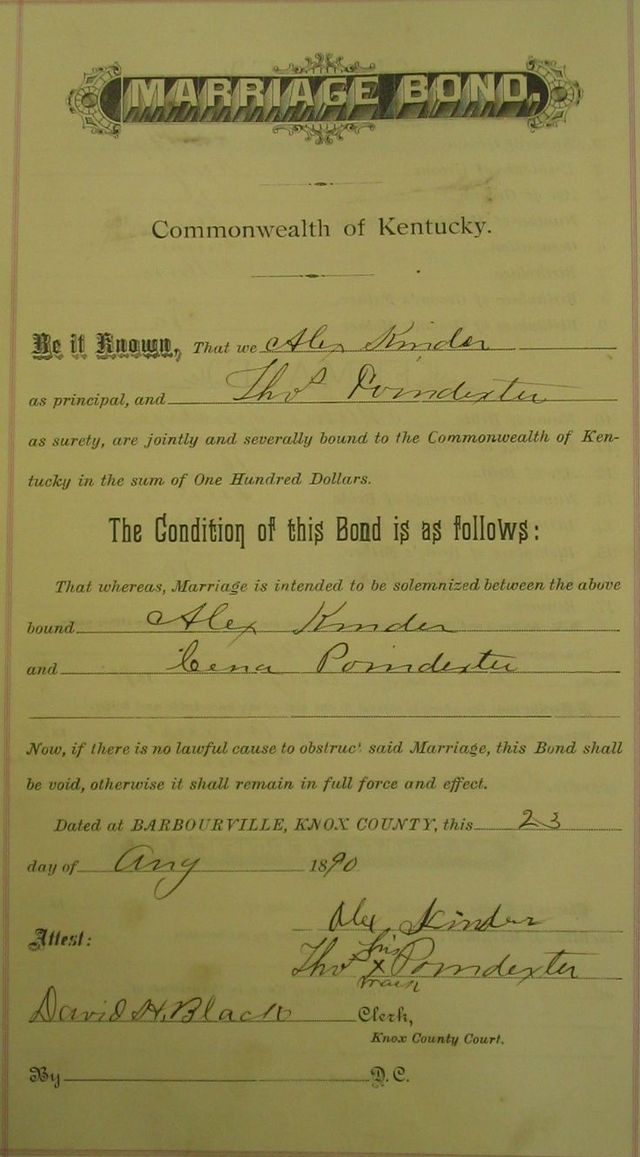 MARRIAGE BOND.
Commonwealth of Kentucky.
Be it Known, That we Alex Kinder
as principal, and Thos Poindexter
as surety, are jointly and severally bound to the Commonwealth of Ken-
tucky in the sum of One Hundred Dollars.
The Condition of this Bond is as follows:
That whereas, Marriage is intended to be solemnized between the above
bound Alex Kinder
and Cena Poindexter
Now, if there is no lawful cause to obstruct said Marriage, this Bond shall
be void, otherwise it shall remain in full force and effect.
Dated at BARBOURVILLE, KNOX COUNTY, this 23
day of Aug 1890
Alex Kinder
Attest:
his
Thos x Poindexter
mark
David H. Black Clerk,
Knox County Court.
By D. C.